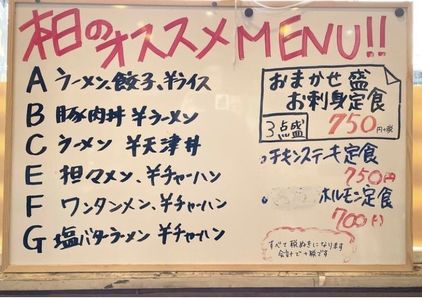 本日のオススメMENU!!
A ラーメン、餃子、半ライス
B 豚肉丼 半ラーメン
C ラーメン 半天津丼
E 担々メン、半チャーハン
F ワンタンメン、半チャーハン
G 塩バターラーメン 半チャーハン
おまかせ盛
お刺身定食
3点盛 750円+税
チキンステーキ定食
750円
ホルモン定食
700円
すべて税ぬきになります
会計で+税です